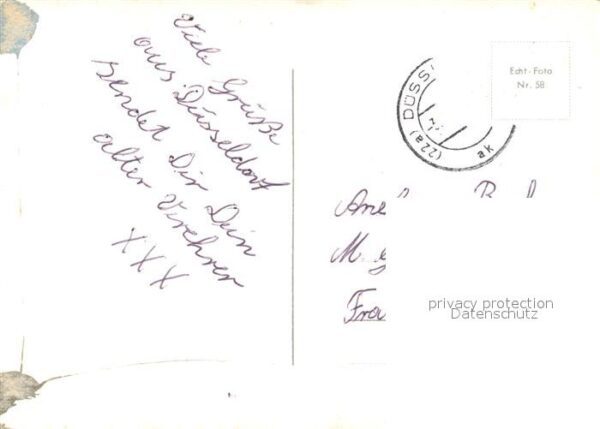 Viele Grüße
aus Düsseldorf
sendet Dir Dein
alter Verehrer
XXX
Echt-Foto
Nr. 58
(22a) DÜSS
ak
M.
privacy protection
Datenschutz